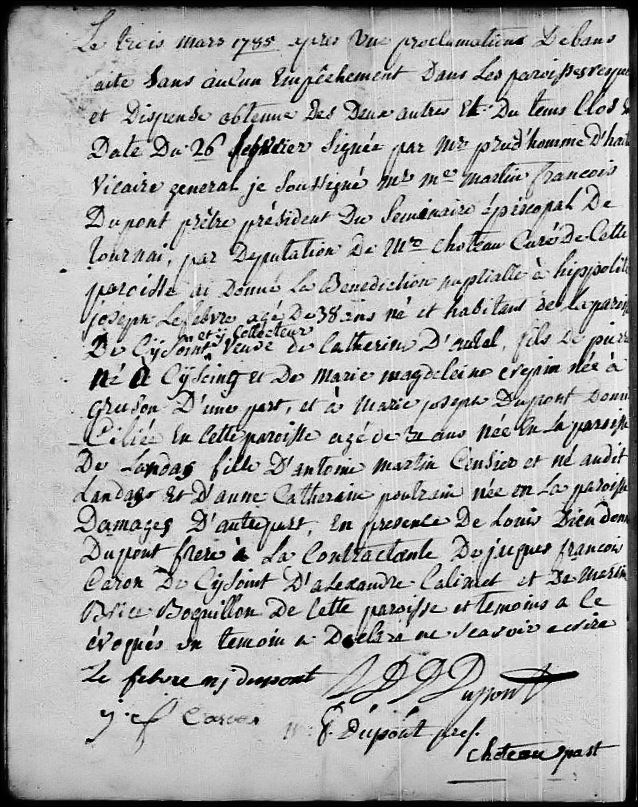 Le trois mars 1785 apres Une proclamations De bans
aite Sans aucun Empêchement Dans Les paroisses
et Dispense obtenue Des Deux autres Et Du tems Clos
Date Du 26 fevrier Signée par Mr prud'homme D'
Vicaire general je Soussigné mr me martin françois
Dupont prêtre président Du Seminaire épiscopal De
tournai, par Deputation De Mre Choteau Curé De Cette
paroisse ai Donné La Benediction nuptialle à hippolite
joseph Lefebvre agé De 38 ans né et habitant de la
et y Collecteur
De Cysoint Veuve de Catherine D' fils de pierre
né à Cysoing et De Marie magdeleine crepin née à
Gruson D'une part, et à Marie joseph Dupont
En Cette paroisse agé de ans Née En La paroisse
De Landas fille D'antoine Martin Censier et né audit
Landas Et D'anne Catherine poutrain née en La paroisse
Damages D'autre part, En presence De Louis Dieudonné
Dupont frere à La Contractante De jacques françois
Caron De Cysoint D'alexandre Calimet et De
Boquillon De Cette paroisse et temoins a Ce
évoqués un temoin a Declara ne scavoir ecrire
Le febvre mj dupont Dupont
j. f Caron m. f. dupont pres.
Choteau past